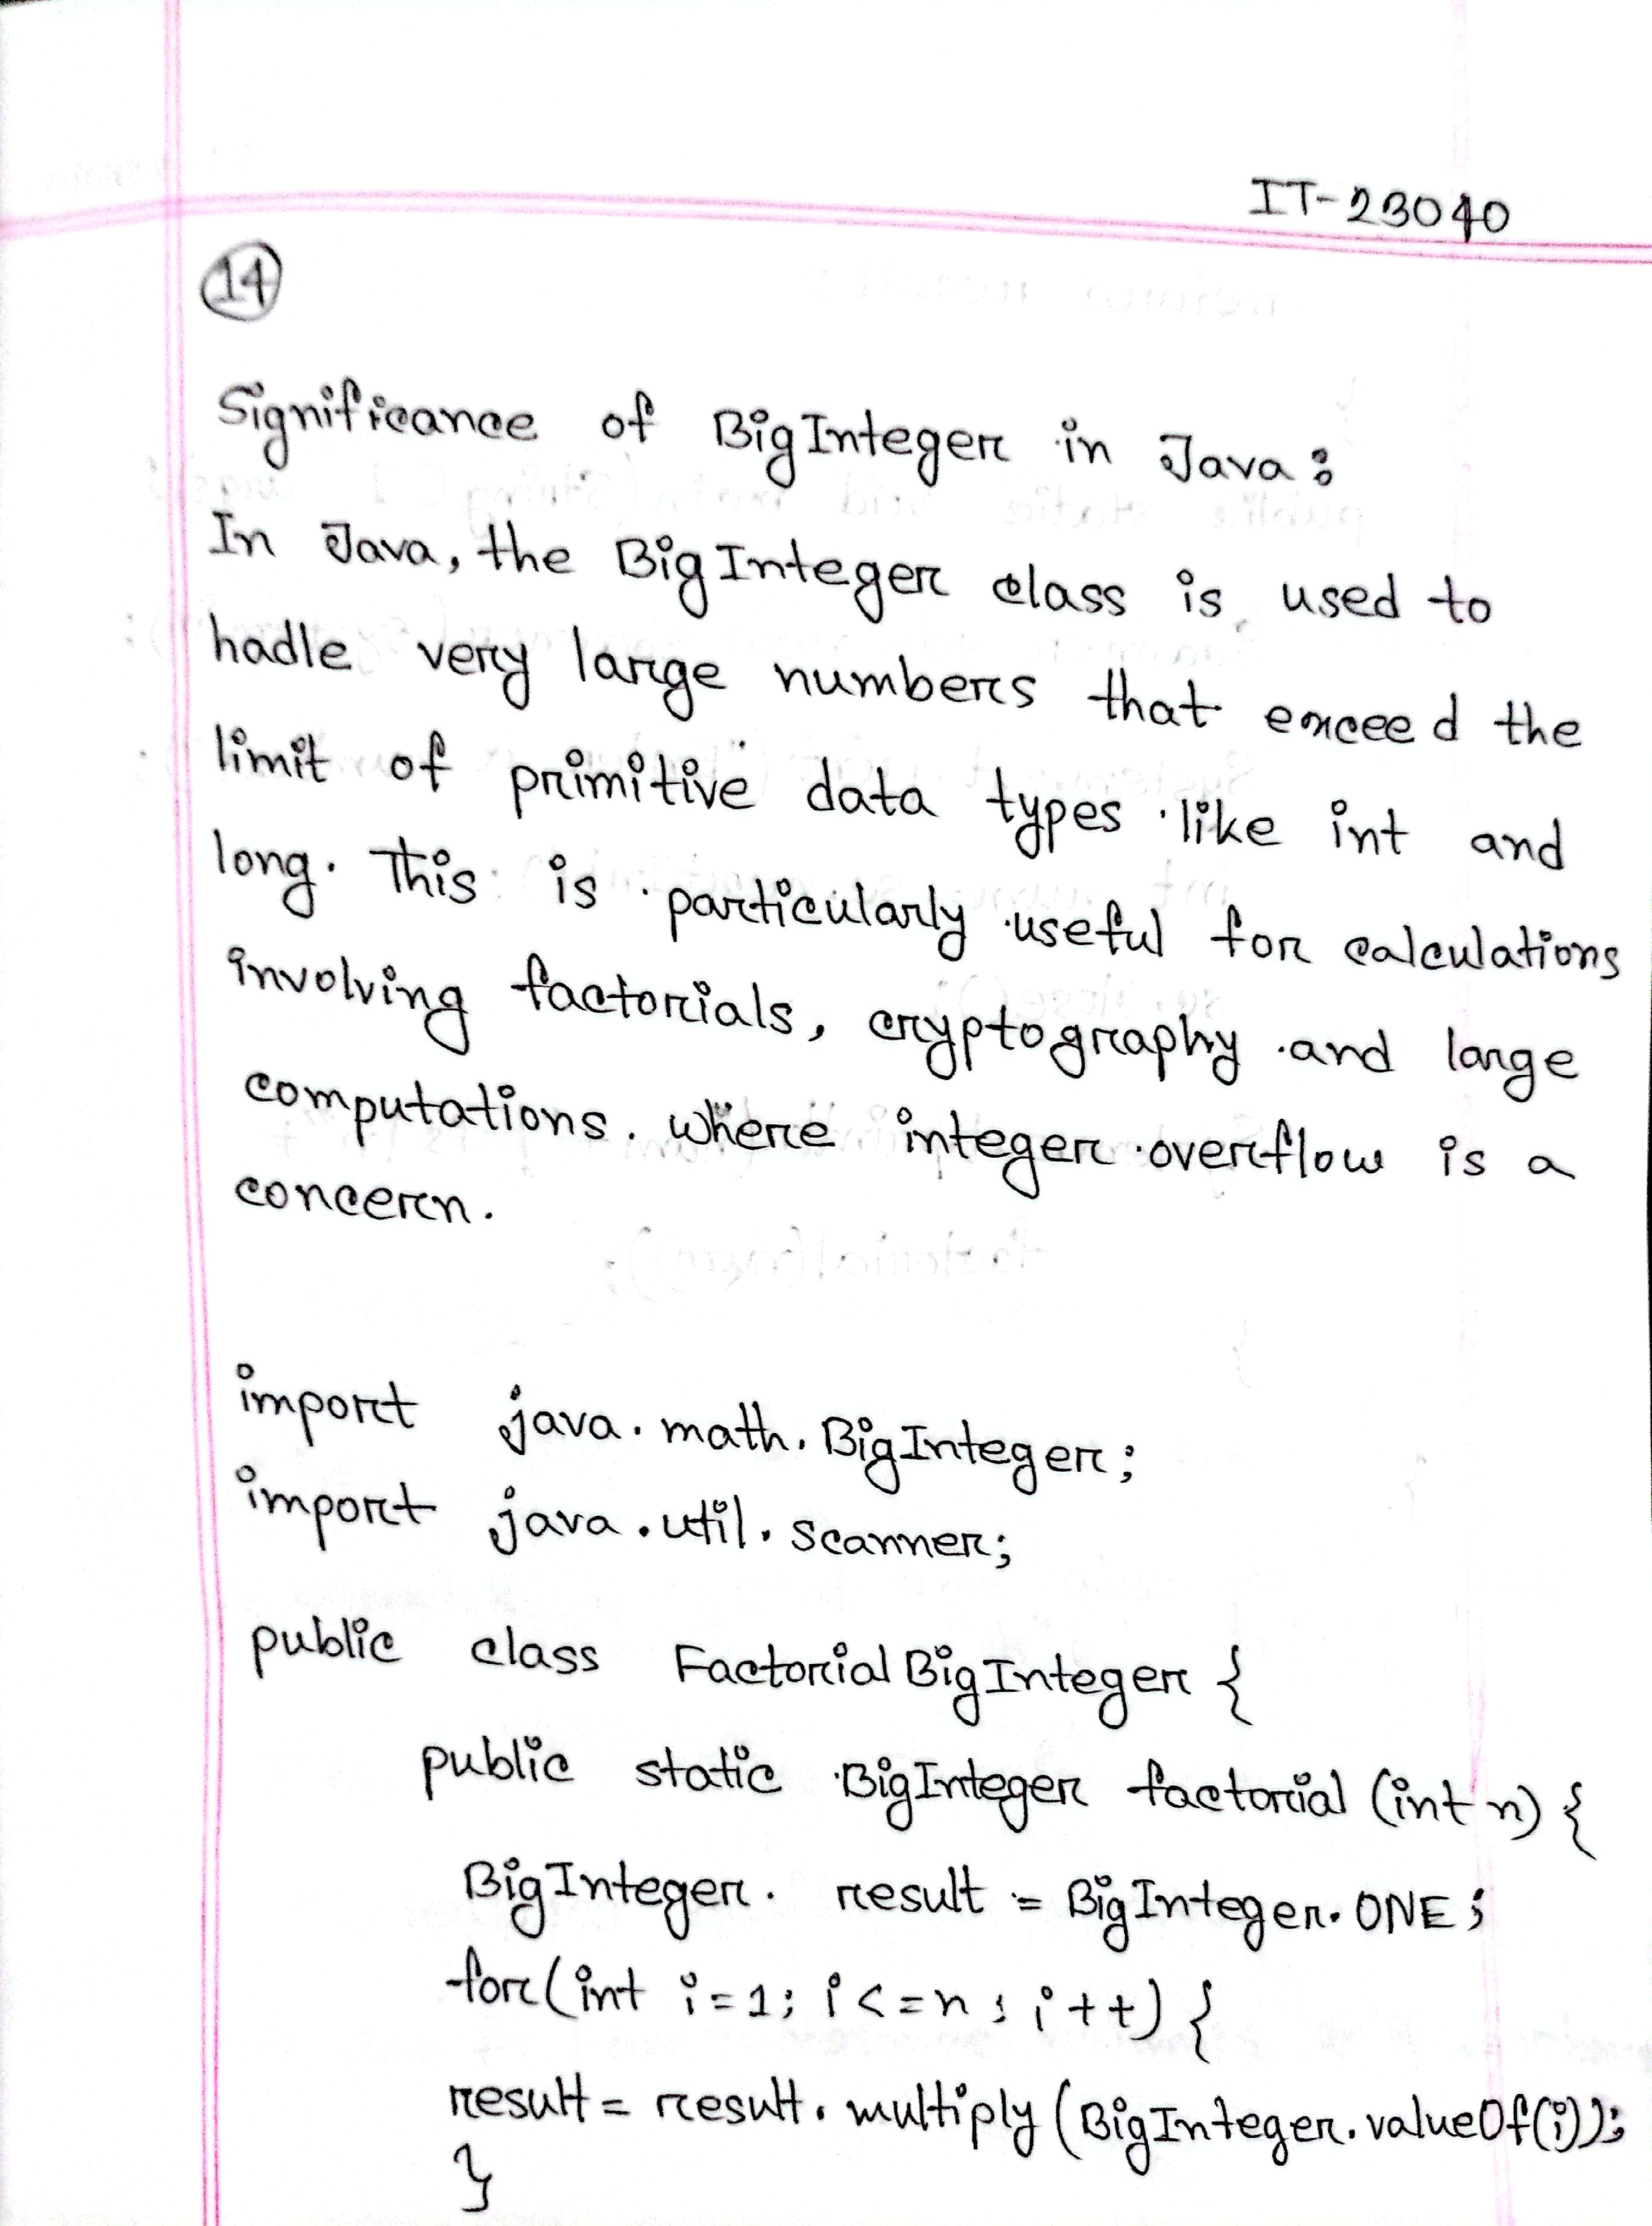 IT-23040
14
Significance of BigInteger in Java:
In Java, the BigInteger class is used to
hadle very large numbers that exceed the
limit of primitive data types like int and
long. This is particularly useful for calculations
involving factorials, cryptography and large
computations. where integer overflow is a
concern.
import java.math.BigInteger;
import java.util.scanner;
public class FactorialBigInteger {
public static BigInteger factorial (int n) {
BigInteger. result = BigInteger.ONE;
for(int i=1; i<=n; i++) {
result = result.multiply(BigInteger.valueOf(i));
}